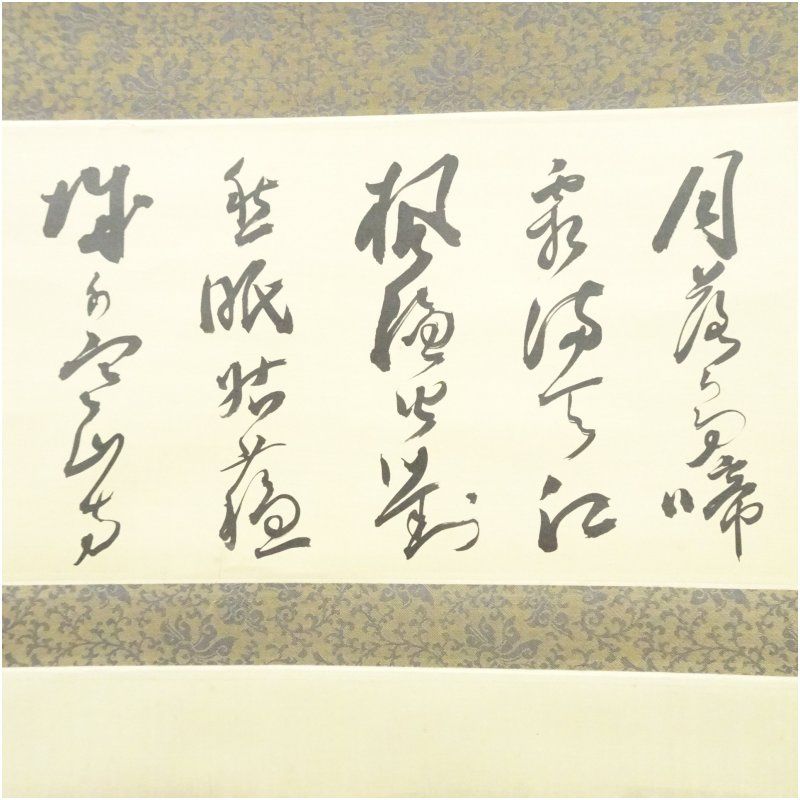 月落烏啼
霜満天江
楓漁火對
愁眠姑蘇
城外寒山寺